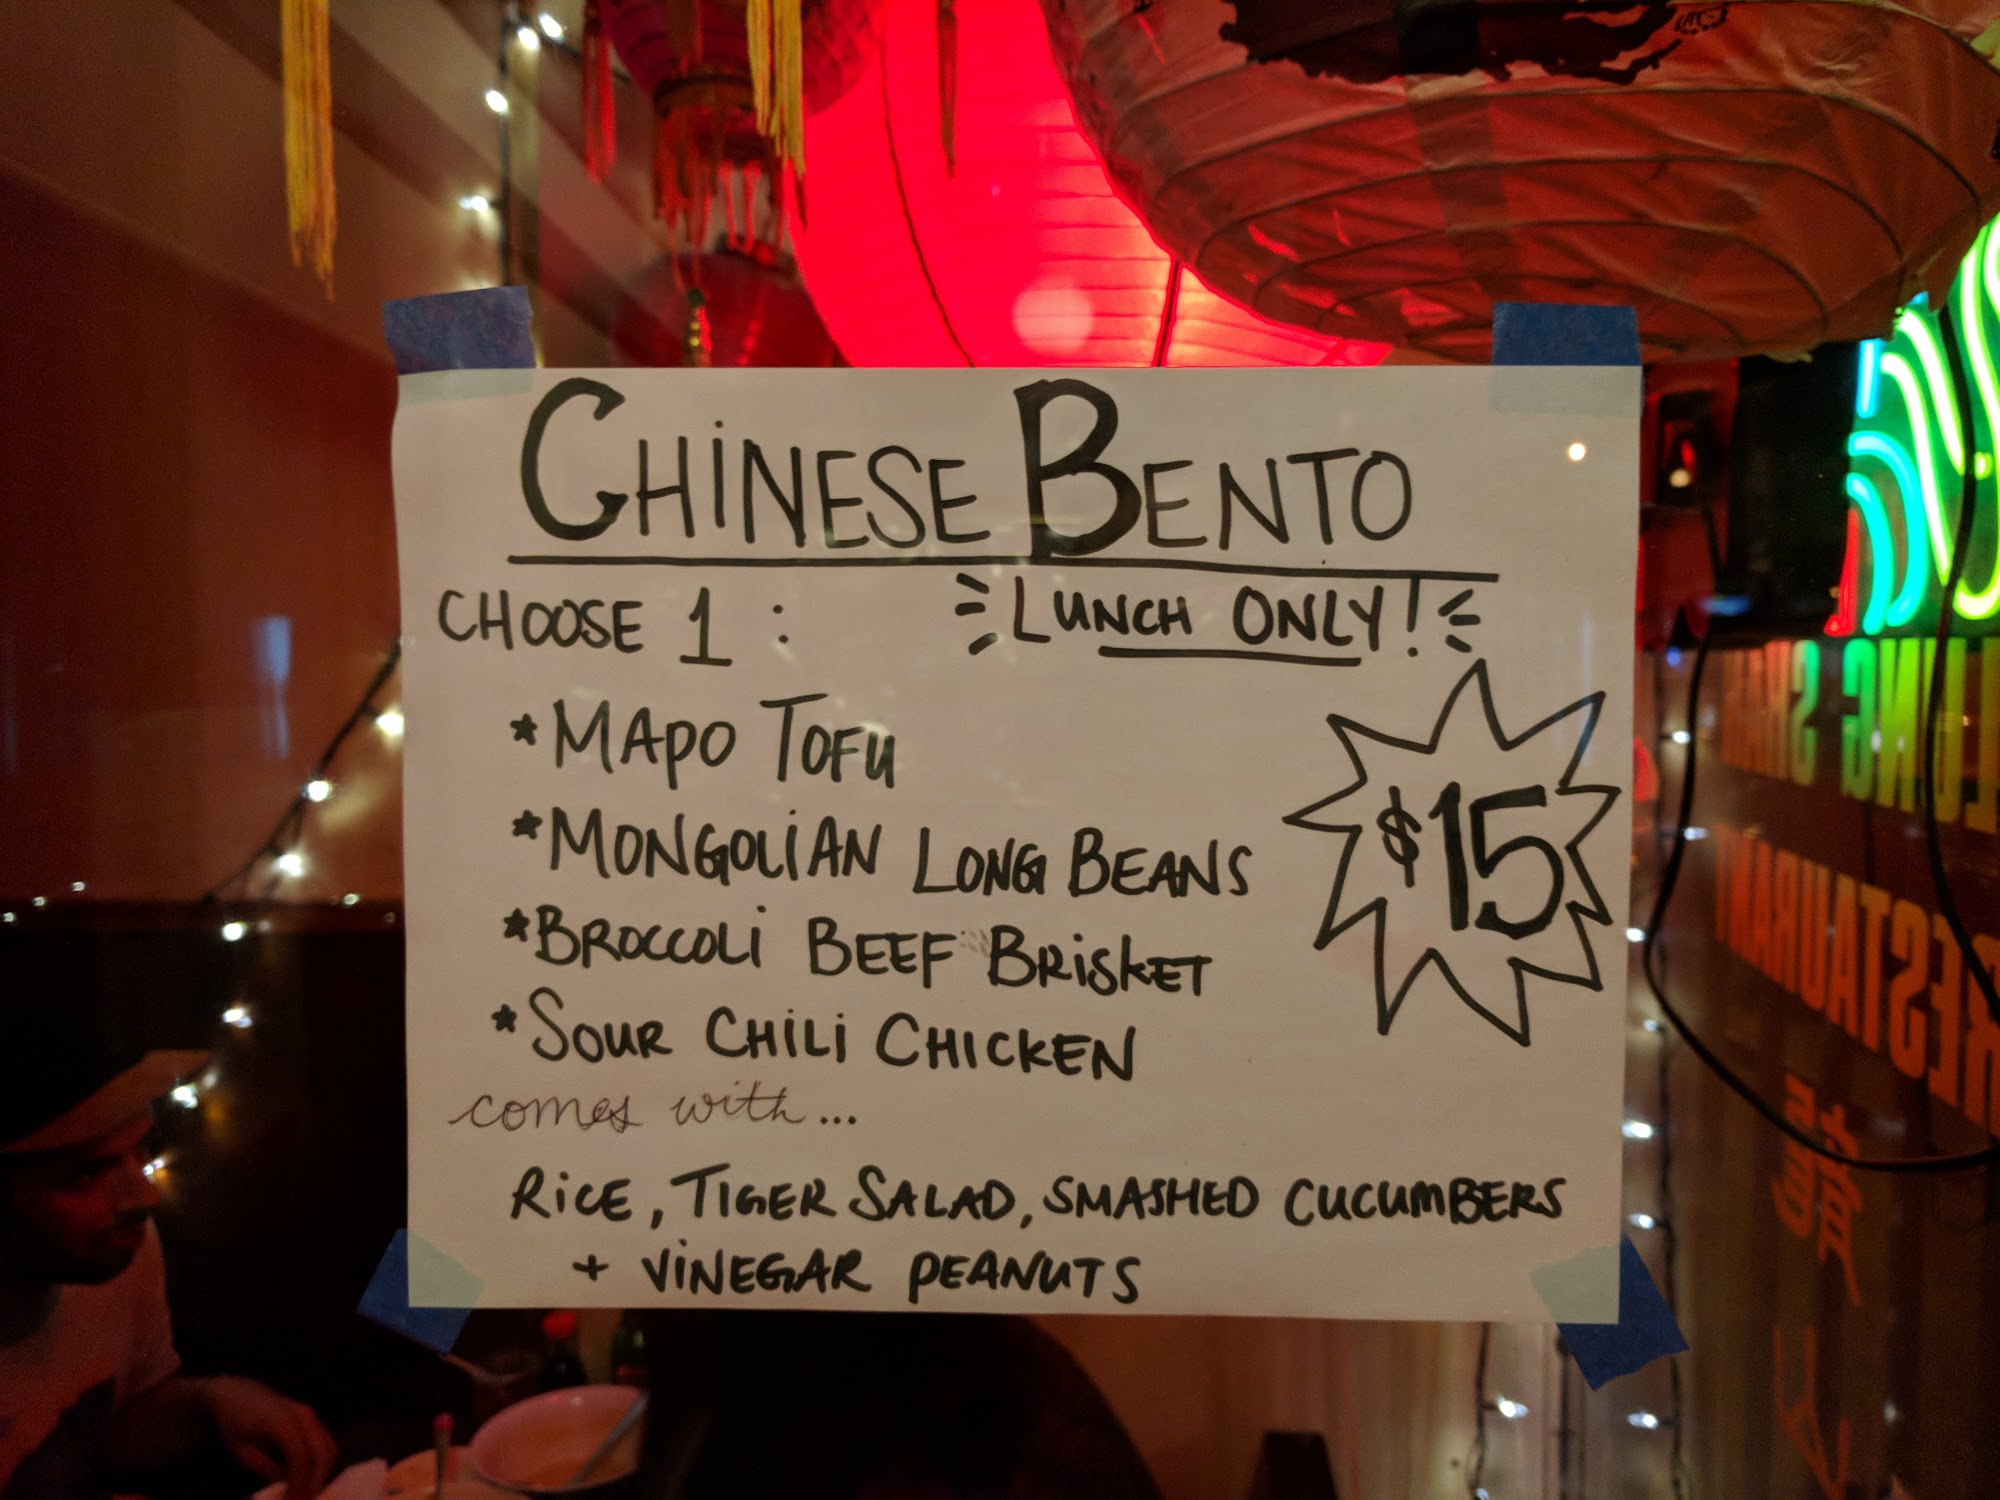 CHINESE BENTO
CHOOSE 1 : LUNCH ONLY!
*MAPO TOFU
*MONGOLIAN LONG BEANS
*BROCCOLI BEEF BRISKET
*SOUR CHILI CHICKEN
$15
comes with...
RICE, TIGER SALAD, SMASHED CUCUMBERS
+ VINEGAR PEANUTS
RESTAURANT